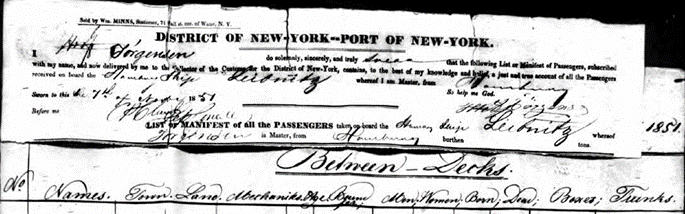 Sold by Wm. MINNS, Stationer, 71 Wall st. cor. of Water, N. Y.
DISTRICT OF NEW-YORK—PORT OF NEW-YORK.
I Jörgensen do solemnly, sincerely, and truly swear that the following List or Manifest of Passengers, subscribed
with my name, and now delivered by me to the Collector of the Customs for the District of New-York, contains, to the best of my knowledge and belief, a just and true account of all the Passengers
received on board the Ship Leibnitz whereof I am Master, from Hamburg
Sworn to this 1851 So help me God.
Before me
LIST OR MANIFEST OF ALL THE PASSENGERS taken on board the Ship Leibnitz whereof
is Master, from Hamburg burthen tons. 1851.
Between-Decks.
No Names. Town-Land. Mechanics Age Men, Women, Born; Dead; Boxes; Trunks.